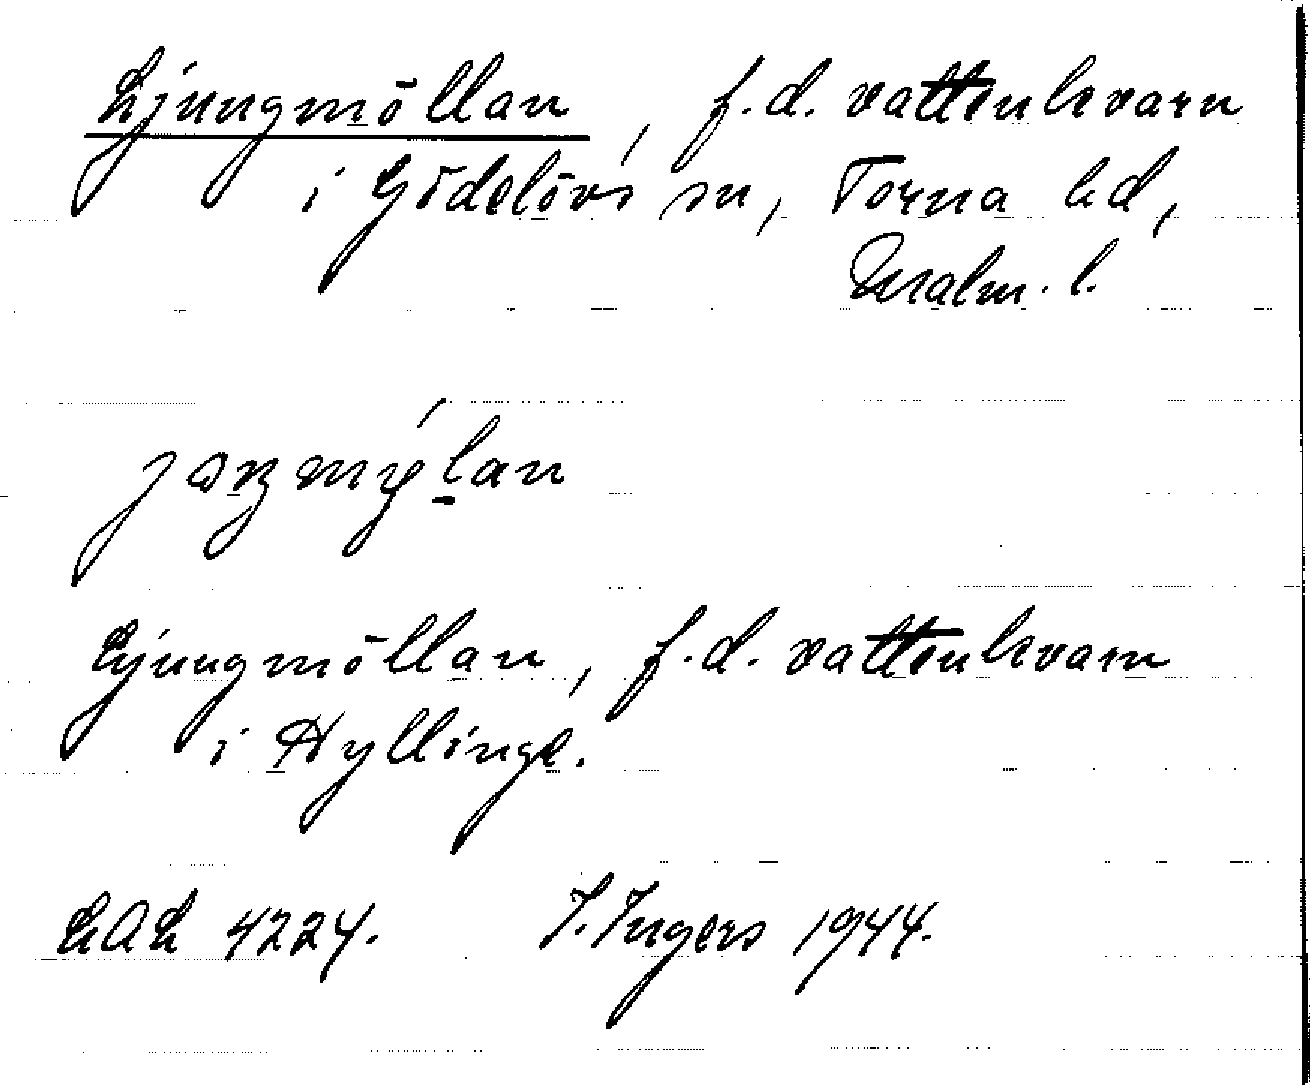 Ljungmöllan, f.d. vattenkvarn
i Gödelövs sn, Torna hd,
Malm. l.
Ljungmöllan, f.d. vattenkvarn
i Hyllinge.
LAL 4224. I. Ingers 1944.